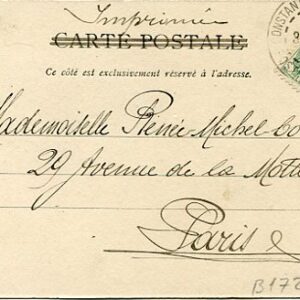 Imprimée
CARTE POSTALE
Ce côté est exclusivement réservé à l'adresse.
ONSTAN
Mademoiselle Renée-Michel
29 Avenue de la
Paris
B172